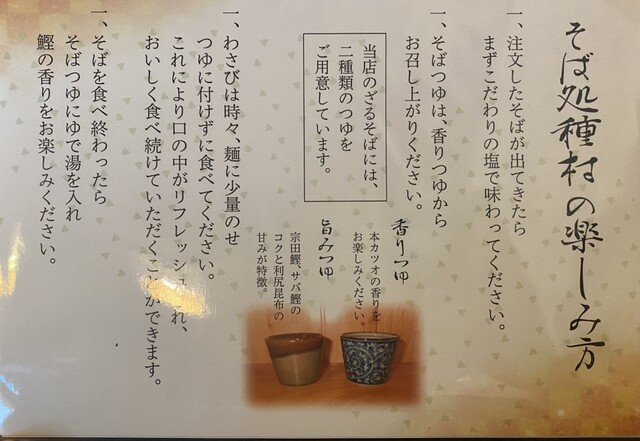 そば処種村の楽しみ方
一、注文したそばが出てきたら
まずこだわりの塩で味わってください。
一、そばつゆは、香りつゆから
お召し上がりください。
当店のざるそばには、
二種類のつゆを
ご用意しています。
香りつゆ
本カツオの香りを
お楽しみください。
旨みつゆ
宗田鰹、サバ鰹の
コクと利尻昆布の
甘みが特徴。
一、わさびは時々、麺に少量のせ
つゆに付けずに食べてください。
これにより口の中がリフレッシュされ、
おいしく食べ続けていただくことができます。
一、そばを食べ終わったら
そばつゆにゆで湯を入れ
鰹の香りをお楽しみください。